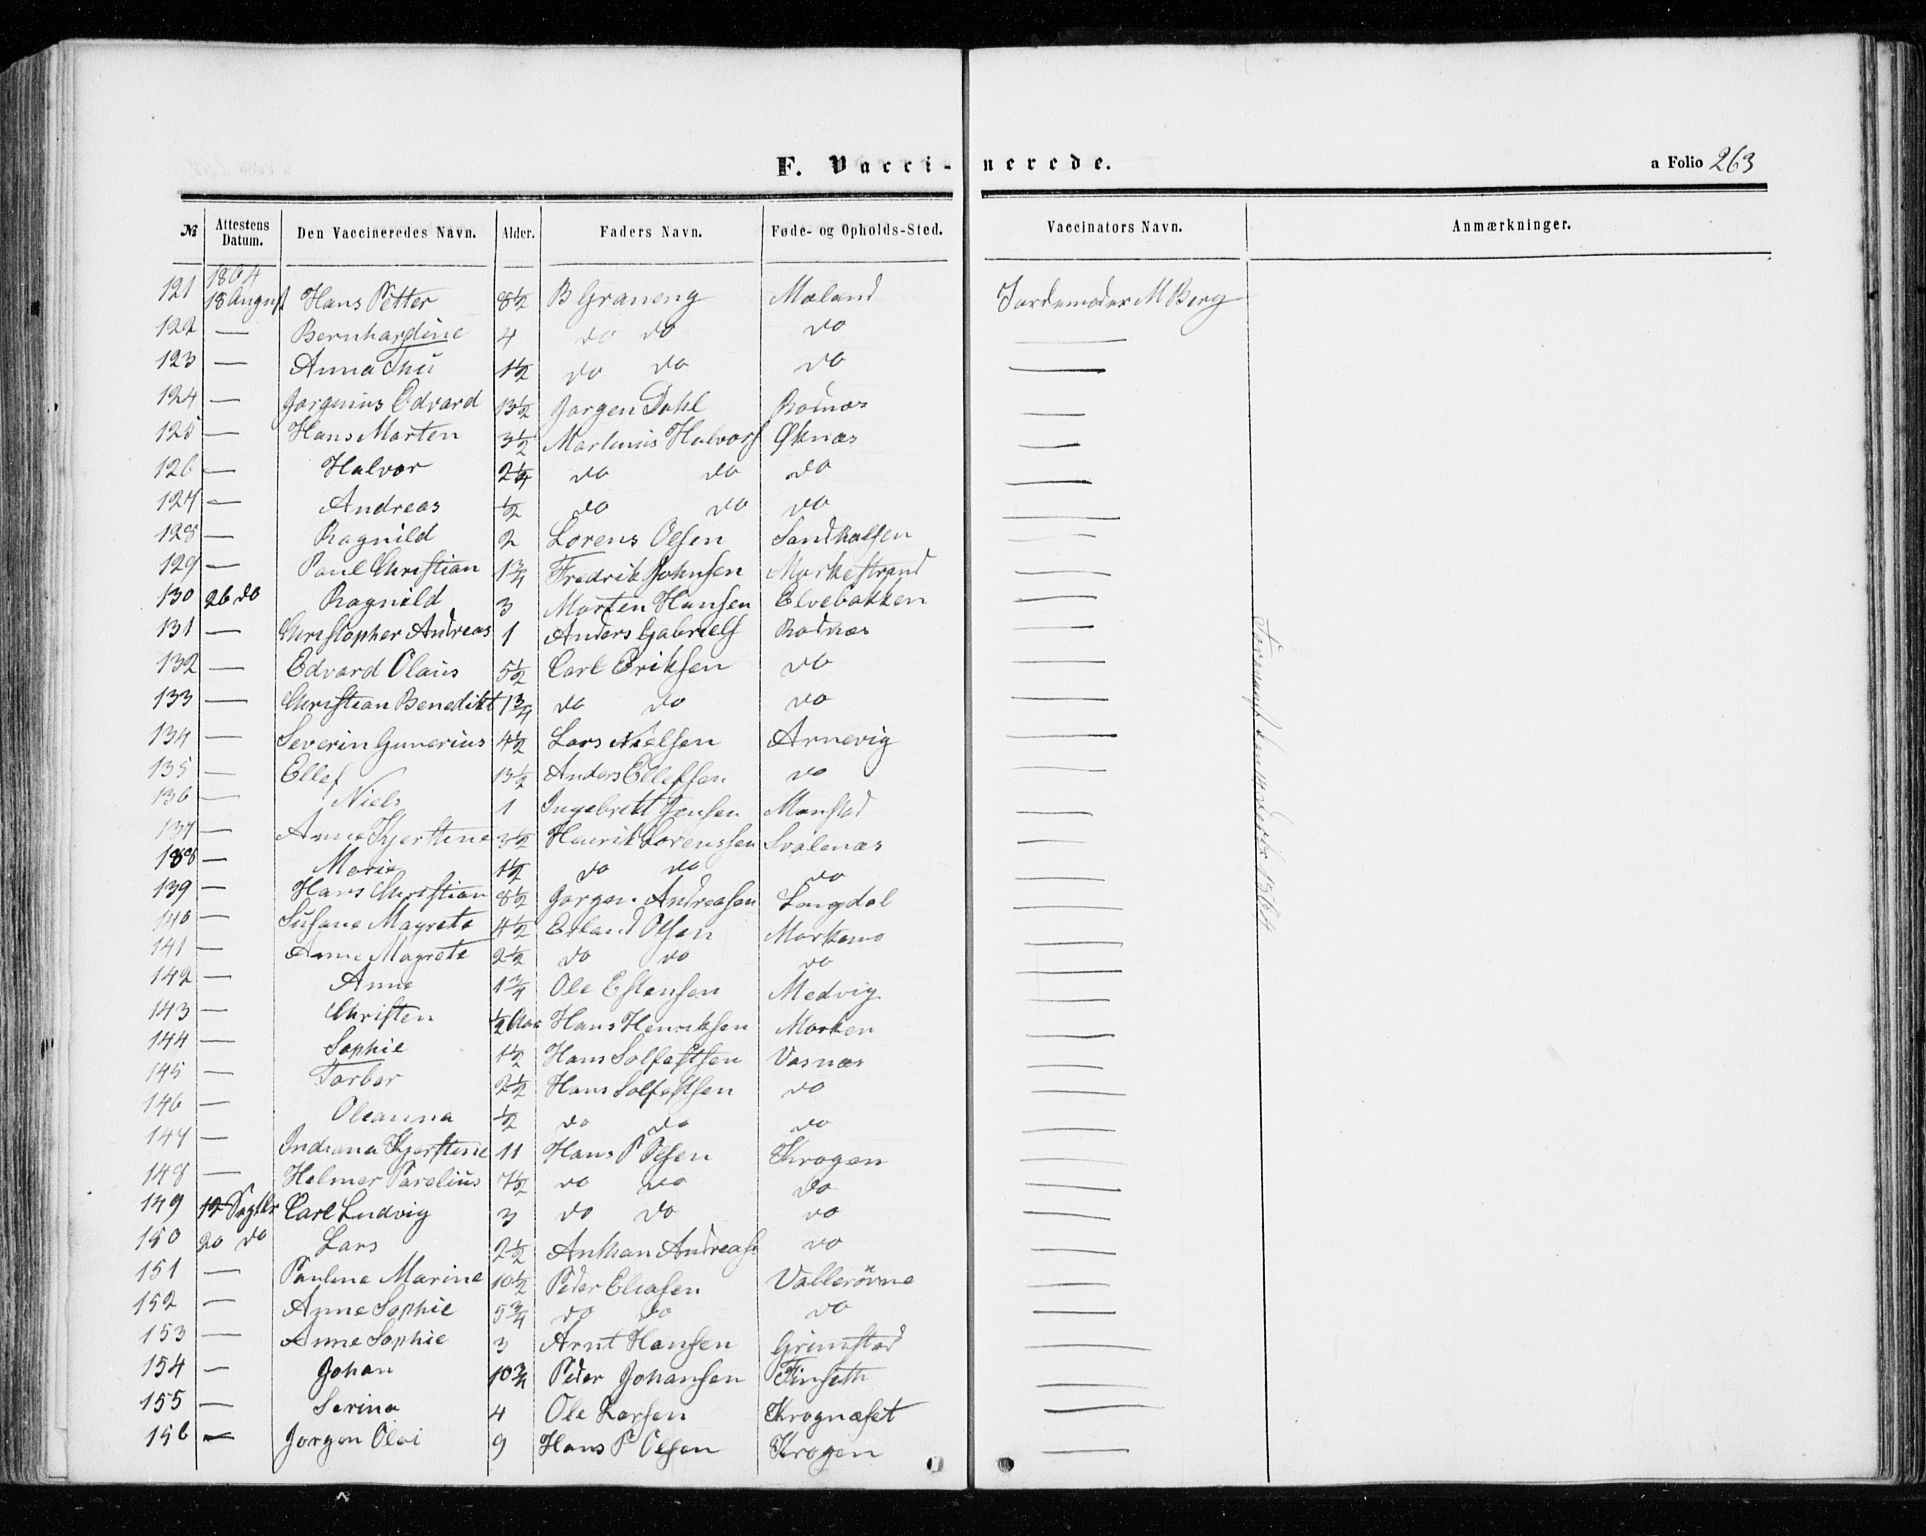 F. Vacci-nerede.
a Folio 263
№ Attestens Datum. Den Vaccineredes Navn. Alder. Faders Navn. Føde- og Opholds-Sted. Vaccinators Navn. Anmærkninger.
1864
121 18 August Hans Petter 8½ B Graneng Mæland Jordemoder M Berg
122 — Bernhardine 4 do do do —
123 — Anna 1½ do do do —
124 — Jørginius Edvard 13½ Jørgen Dahl —
125 — Hans Morten 3½ Martinus Halvors Øknæs —
126 — Halvor 2¼ do do do —
127 — Andreas ½ do do do —
128 — Ragnild 2 Lorens Olsen Sandhalsen —
129 — Paul Christian 1¾ Fredrik Johnsen Markestrand —
130 26 do Ragnild 3 Morten Hansen Elvebakken —
131 — Christopher Andreas 1 Anders Gabriels Rodnæs —
132 — Edvard Olaus 5½ Carl Eriksen do —
133 — Christian Benedikt 1¾ do do do —
134 — Severin Gunerius 4½ Lars Nielsen Arnevig —
135 — Ellef 13½ Anders Ellefsen do —
136 — Niels 1 Ingebrikt Jensen Monstad —
137 — Anne Kjerstine 3½ Henrik Lorenssen Svolenæs —
138 — Marie 1½ do do do —
139 — Hans Christian 8½ Jørgen Andreasen Langdal —
140 — Susane Magrete 4½ Erland Olsen Markemo —
141 — Anne Magrete 2½ do do do —
142 — Anne 1¾ Ole Estensen Medvig —
143 — Christen ½ Aar Hans Henriksen Morken —
144 — Sophie 1½ Hans Solfestsen Vasnæs —
145 — Torber 2½ Hans Solfestsen do —
146 — Oleanna ½ do do do —
147 — Indiana Kjerstine 11 Hans P Olsen Krogen —
148 — Helmer Parelius 7½ do do do —
149 12 Septbr Carl Ludvig 3 do do do —
150 20 do Lars 2½ Anthon Andreas do —
151 — Pauline Marine 10½ Peder Eliasen —
152 — Anne Sophie 5¾ do do do —
153 — Anne Sophie 3 Arnt Hansen Grimstad —
154 — Johan 10¾ Peder Johansen Finseth —
155 — Serina 4 Ole Larsen Krognæset —
156 — Jørgen Olai 9 Hans P Olsen Krogen —